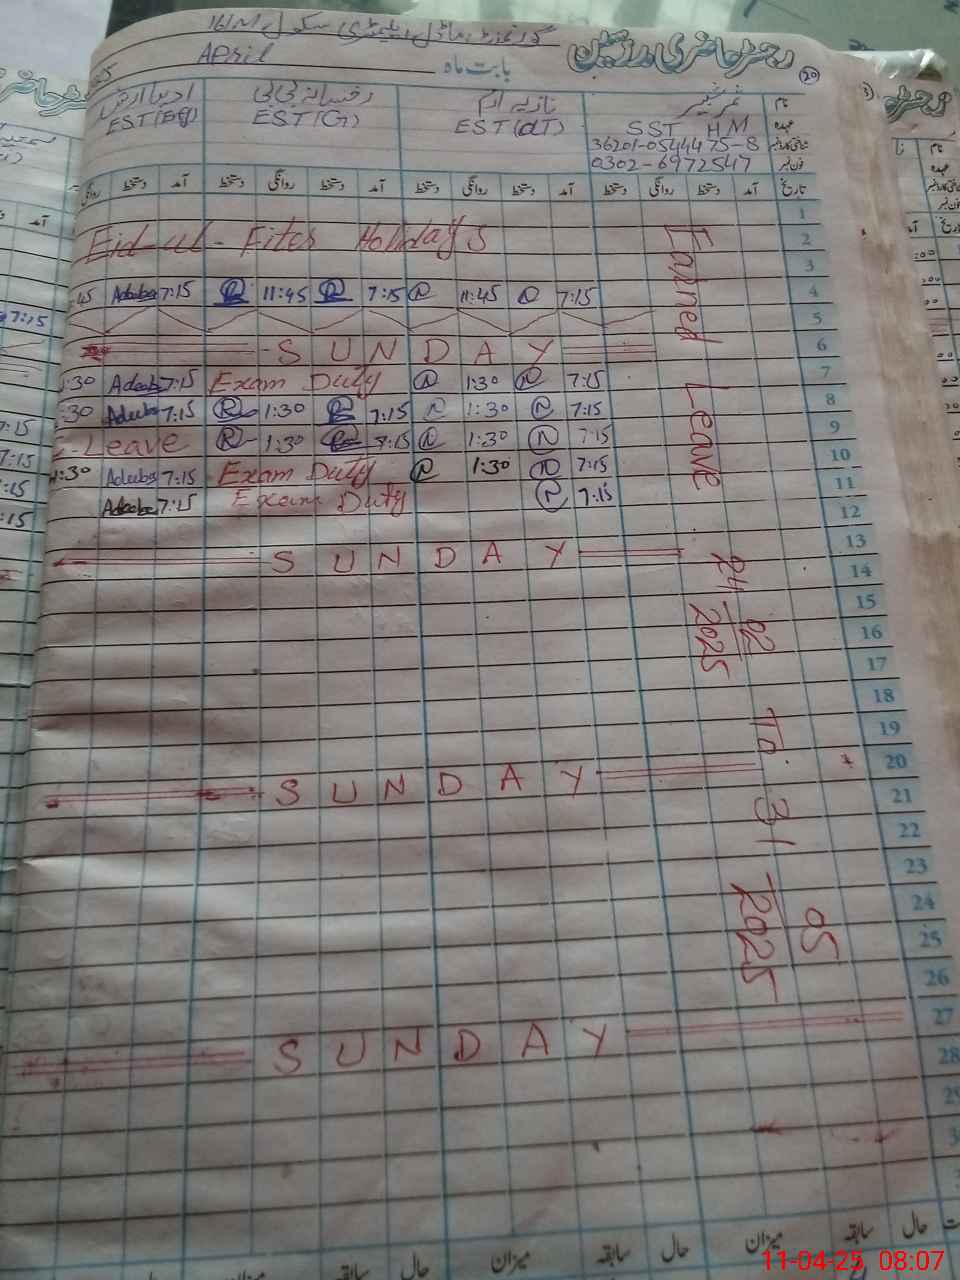 گورنمنٹ ماڈل ایلیمنٹری سکول 161/M
رجسٹر حاضری مدرسین
20
بابت ماہ April
نام
عہدہ SST HM
شناختی کارڈ نمبر 36201-0544475-8
فون نمبر 0302-6972547
نازیہ ارم
EST(dT)
رخسانہ بی بی
EST(G)
EST(Eng)
تاریخ آمد دستخط روانگی دستخط آمد دستخط روانگی دستخط آمد دستخط روانگی دستخط آمد دستخط روانگی
1
2 Eid-ul-Fiter Holidays
3
4 7:15 11:45 7:15 11:45 7:15 Adeeba :45
5
6 SUNDAY
7 7:15 1:30 Exam Duty 7:15 Adeeba :30
8 7:15 1:30 7:15 1:30 7:15 Adeeba :30
9 7:15 1:30 7:15 1:30 Leave
10 7:15 1:30 Exam Duty 7:15 Adeeba 1:30
11 7:15 Exam Duty 7:15 Adeeba
12
13 SUNDAY
14
15
16
17
18
19
20 SUNDAY
21
22
23
24
25
26
27 SUNDAY
28
Earned Leave 24/02/2025 To 31/05/2025
حال سابقہ میزان حال سابقہ میزان حال سابقہ میزان
11-04-25, 08:07